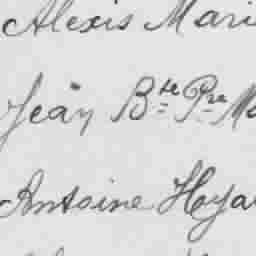 Alexis Mari
Jean Bte Pre Ma
Antoine Hoya